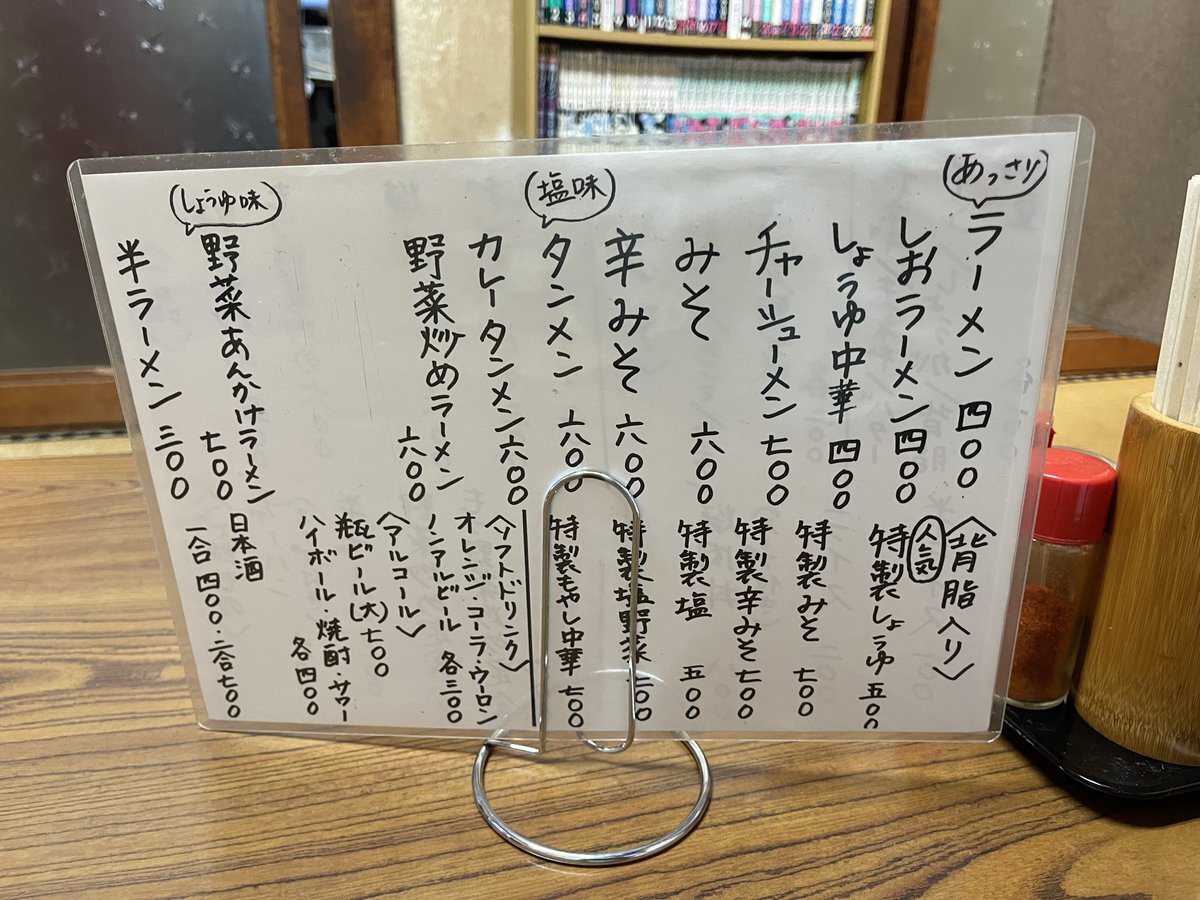 あっさり
ラーメン 四〇〇
しおラーメン 四〇〇
しょうゆ中華 四〇〇
チャーシューメン 七〇〇
みそ 六〇〇
辛みそ 六〇〇
塩味
タンメン 六〇〇
カレータンメン 六〇〇
野菜炒めラーメン 六〇〇
しょうゆ味
野菜あんかけラーメン 七〇〇
半ラーメン 三〇〇
〈背脂入り〉
人気
特製しょうゆ 五〇〇
特製みそ 七〇〇
特製辛みそ 七〇〇
特製塩 五〇〇
特製塩野菜 七〇〇
特製もやし中華 七〇〇
〈ソフトドリンク〉
オレンジ・コーラ・ウーロン
ノンアルビール 各三〇〇
〈アルコール〉
瓶ビール(大)七〇〇
ハイボール・焼酎・サワー
各四〇〇
日本酒
一合 四〇〇・二合七〇〇